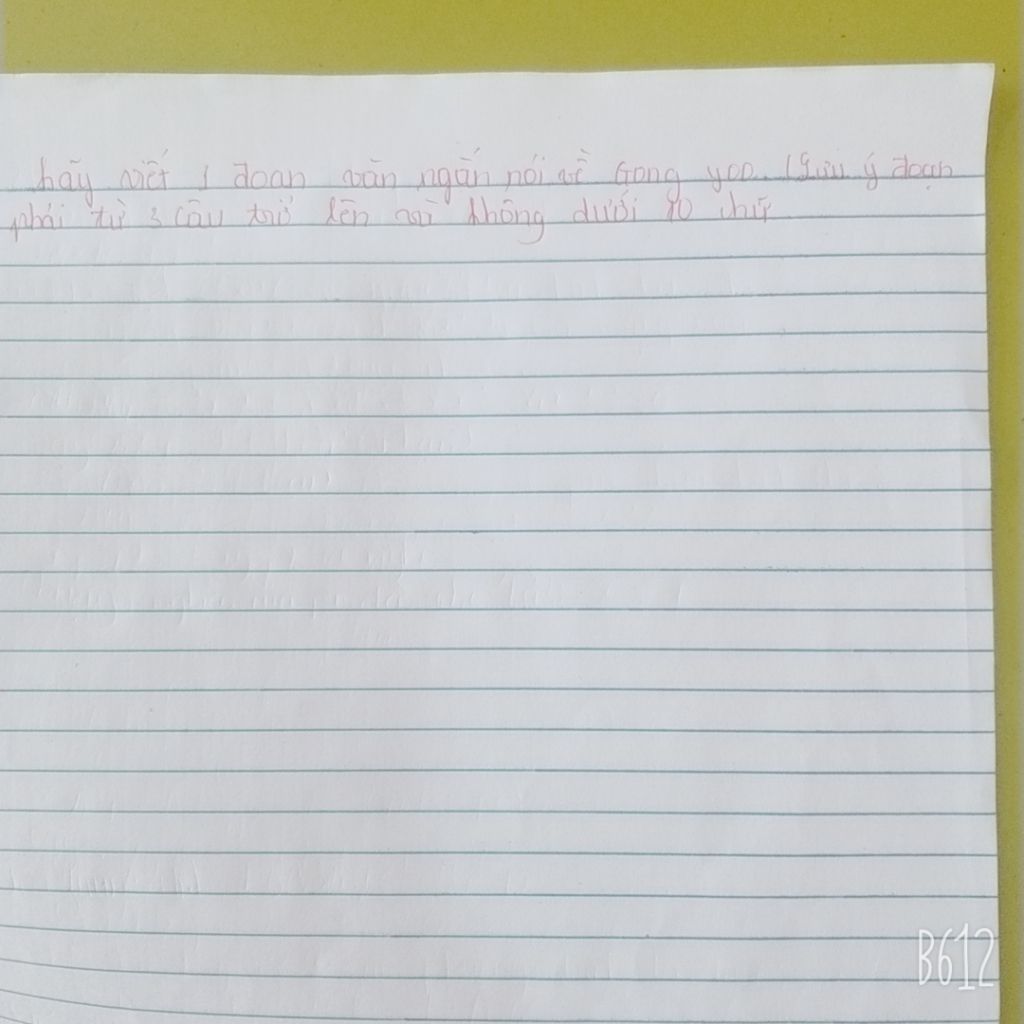 hãy viết 1 đoạn văn ngắn nói về Gong yoo. (Lưu ý đoạn
phải từ 3 câu trở lên và không dưới 90 chữ
B612